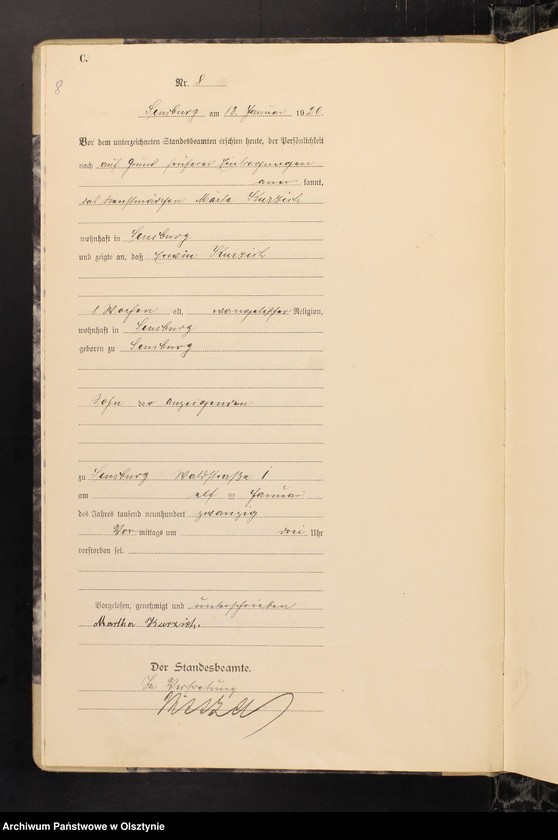 C.
8
Nr. 8
Sensburg am 12. Januar 1920.
Vor dem unterzeichneten Standesbeamten erschien heute, der Persönlichkeit
nach auf Grund früherer Eintragungen
aner kannt,
das Dienstmädchen Marta Kurzich
wohnhaft in Sensburg
und zeigte an, daß Erwin Kurzich
Wochen alt, evangelischer Religion,
wohnhaft in Sensburg
geboren zu Sensburg
Sohn der Anzeigenden
zu Sensburg Waldstraße 1
am elf ten Januar
des Jahres tausend neunhundert zwanzig
Vor mittags um drei Uhr
verstorben sei.
Vorgelesen, genehmigt und unterschrieben
Martha Kurzich.
Der Standesbeamte.
In Vertretung
Archiwum Państwowe w Olsztynie